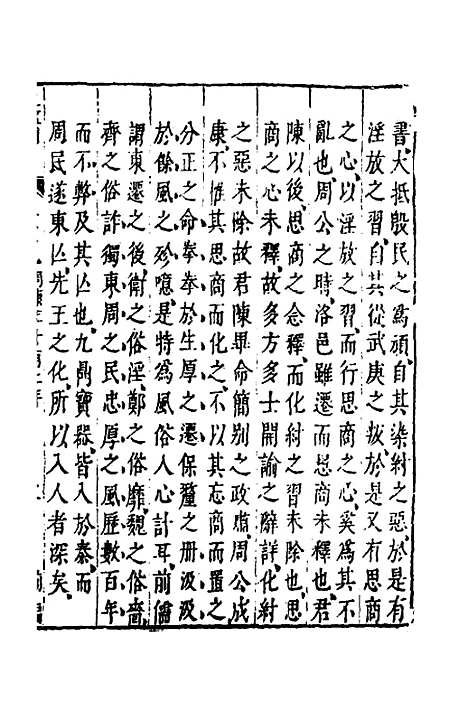 書大抵殷民之為頑自其染紂之惡於是有
淫放之習自其從武庚之叛於是又有思商
之心以淫放之習而行思商之心奚為其不
亂也周公之時洛邑雖遷而思商未釋也君
陳以後思商之念釋而化紂之習未除也惟
商之心未釋故多方多士開諭之辭詳化紂
之惡未除故君陳畢命簡別之政脩周公成
康不惟其思商而化之不以其忘商而置之
分正之命拳拳於生厚之遷保釐之冊汲汲
於餘風之殄噫是特為風俗人心計耳前儒
謂東遷之後衛之俗淫鄭之俗靡魏之俗嗇
齊之俗詐獨東周之民忠厚之風歷數百年
而不弊及其亡也九鼎寶器皆入於秦而
周民遂東亡先王之化所以入人者深矣